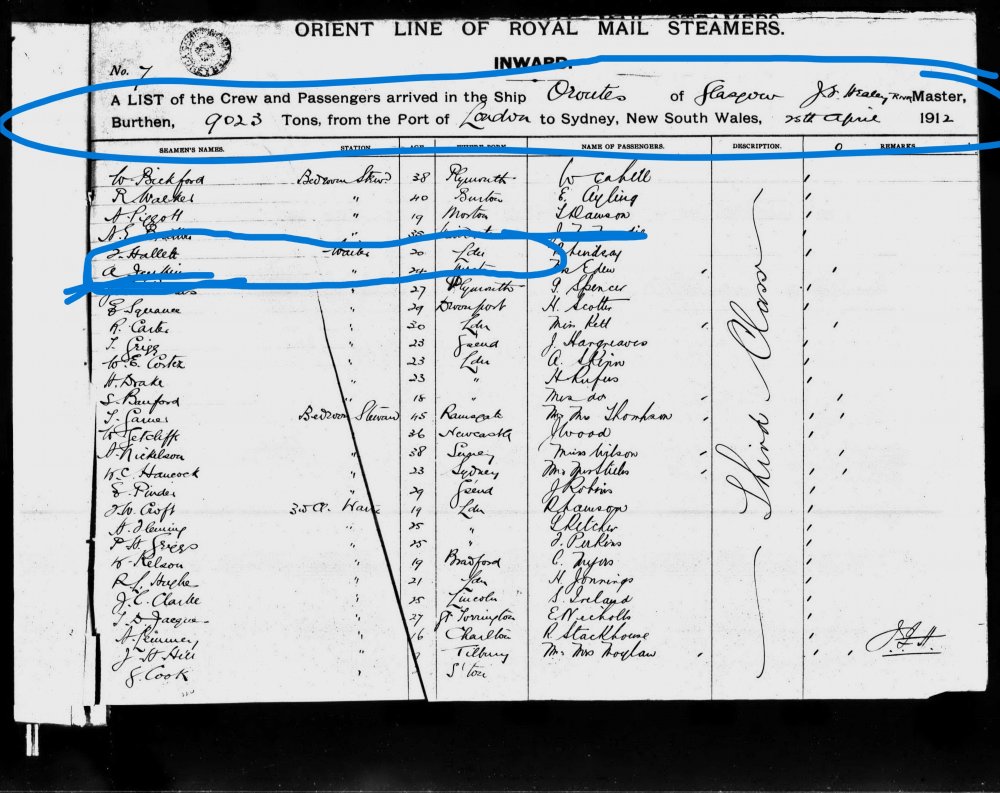 ORIENT LINE OF ROYAL MAIL STEAMERS.
INWARD.
No. 7
A LIST of the Crew and Passengers arrived in the Ship Orontes of Glasgow Master,
Burthen, 9023 Tons, from the Port of London to Sydney, New South Wales, 25th April 1912
SEAMEN'S NAMES. STATION. AGE WHERE BORN NAME OF PASSENGERS. DESCRIPTION. REMARKS
W. Bickford Bedroom Stewd 38 Plymouth W Cahell
R Walker " 40 Burton E. Ayling
A. Piggott " 19 Morton Dawson
" 35
Hallett Waiter 20 Ldn Lindsay
A 24 Mrs Eden
" 27 Plymouth Spencer
E Squance " 29 Devonport H. Scotter
R. Carter " 30 Ldn Miss Kell
T. Grigg " 23 Gsend J. Hargreaves
W. E. Corten " 23 Ldn A. Skipp
H. Drake " 23 " H Rufus
S. Banford " 18 " Mrs do
T. Garner Bedroom Steward 45 Ramsgate Mr Mrs Thompson
W Getcliff " 36 Newcastle J Wood
A. Nickelson " 38 Surrey Miss Wilson
W. C. Hancock " 23 Sydney Mr Mrs
E. Pinder " 29 Gsend J Robins
J. W. Croft 3rd Cl. 19 Ldn R Lawson
H. Fleming " 25 "
P. H. Griggs " 25 " J. Perkins
W Kelson " 19 Bradford C. Myers
R L. Hughe " 21 Ldn H Jennings
J. C. Clarke " 25 Lincoln S. Ireland
T. D. Jacques " 27 Gt Torrington E Nicholls
A. " 16 Charlton R Stackhouse
J. H Hill " Tilbury Mr Mrs Moylan
G. Cook " S'ton
Third Class